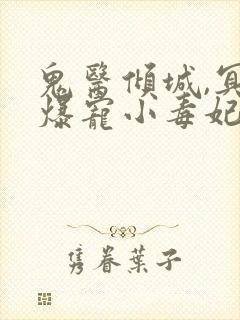 鬼醫傾城,冥
爆寵小毒妃
隽眷葉子